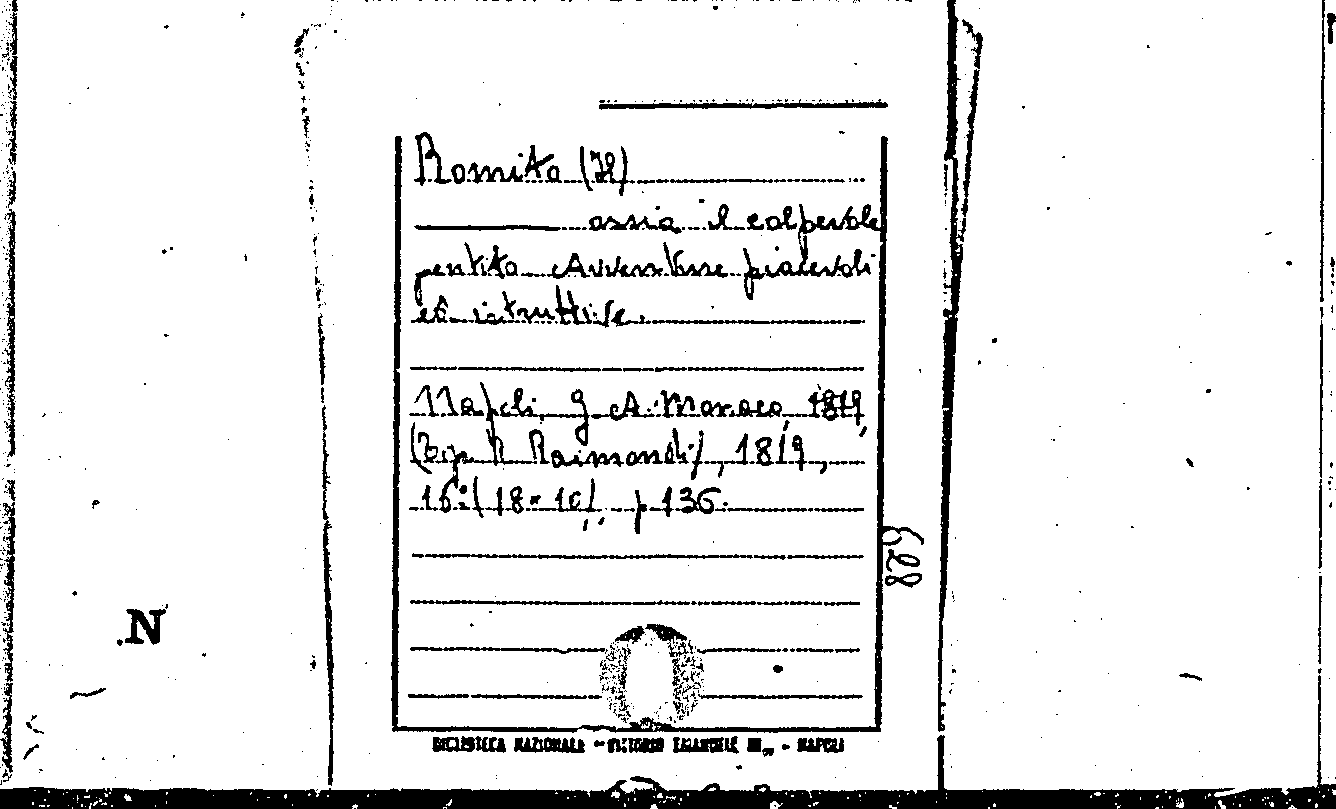 Romito (Il)
ossia il colpevole
pentito Avventure piacevoli
ed istruttive.
Napoli, G. A. Monaco, 1819,
(Tip. R. Raimondi), 1819,
16.º (18 × 10), p. 136.
628
N
BIBLIOTECA NAZIONALE "VITTORIO EMANUELE III" - NAPOLI